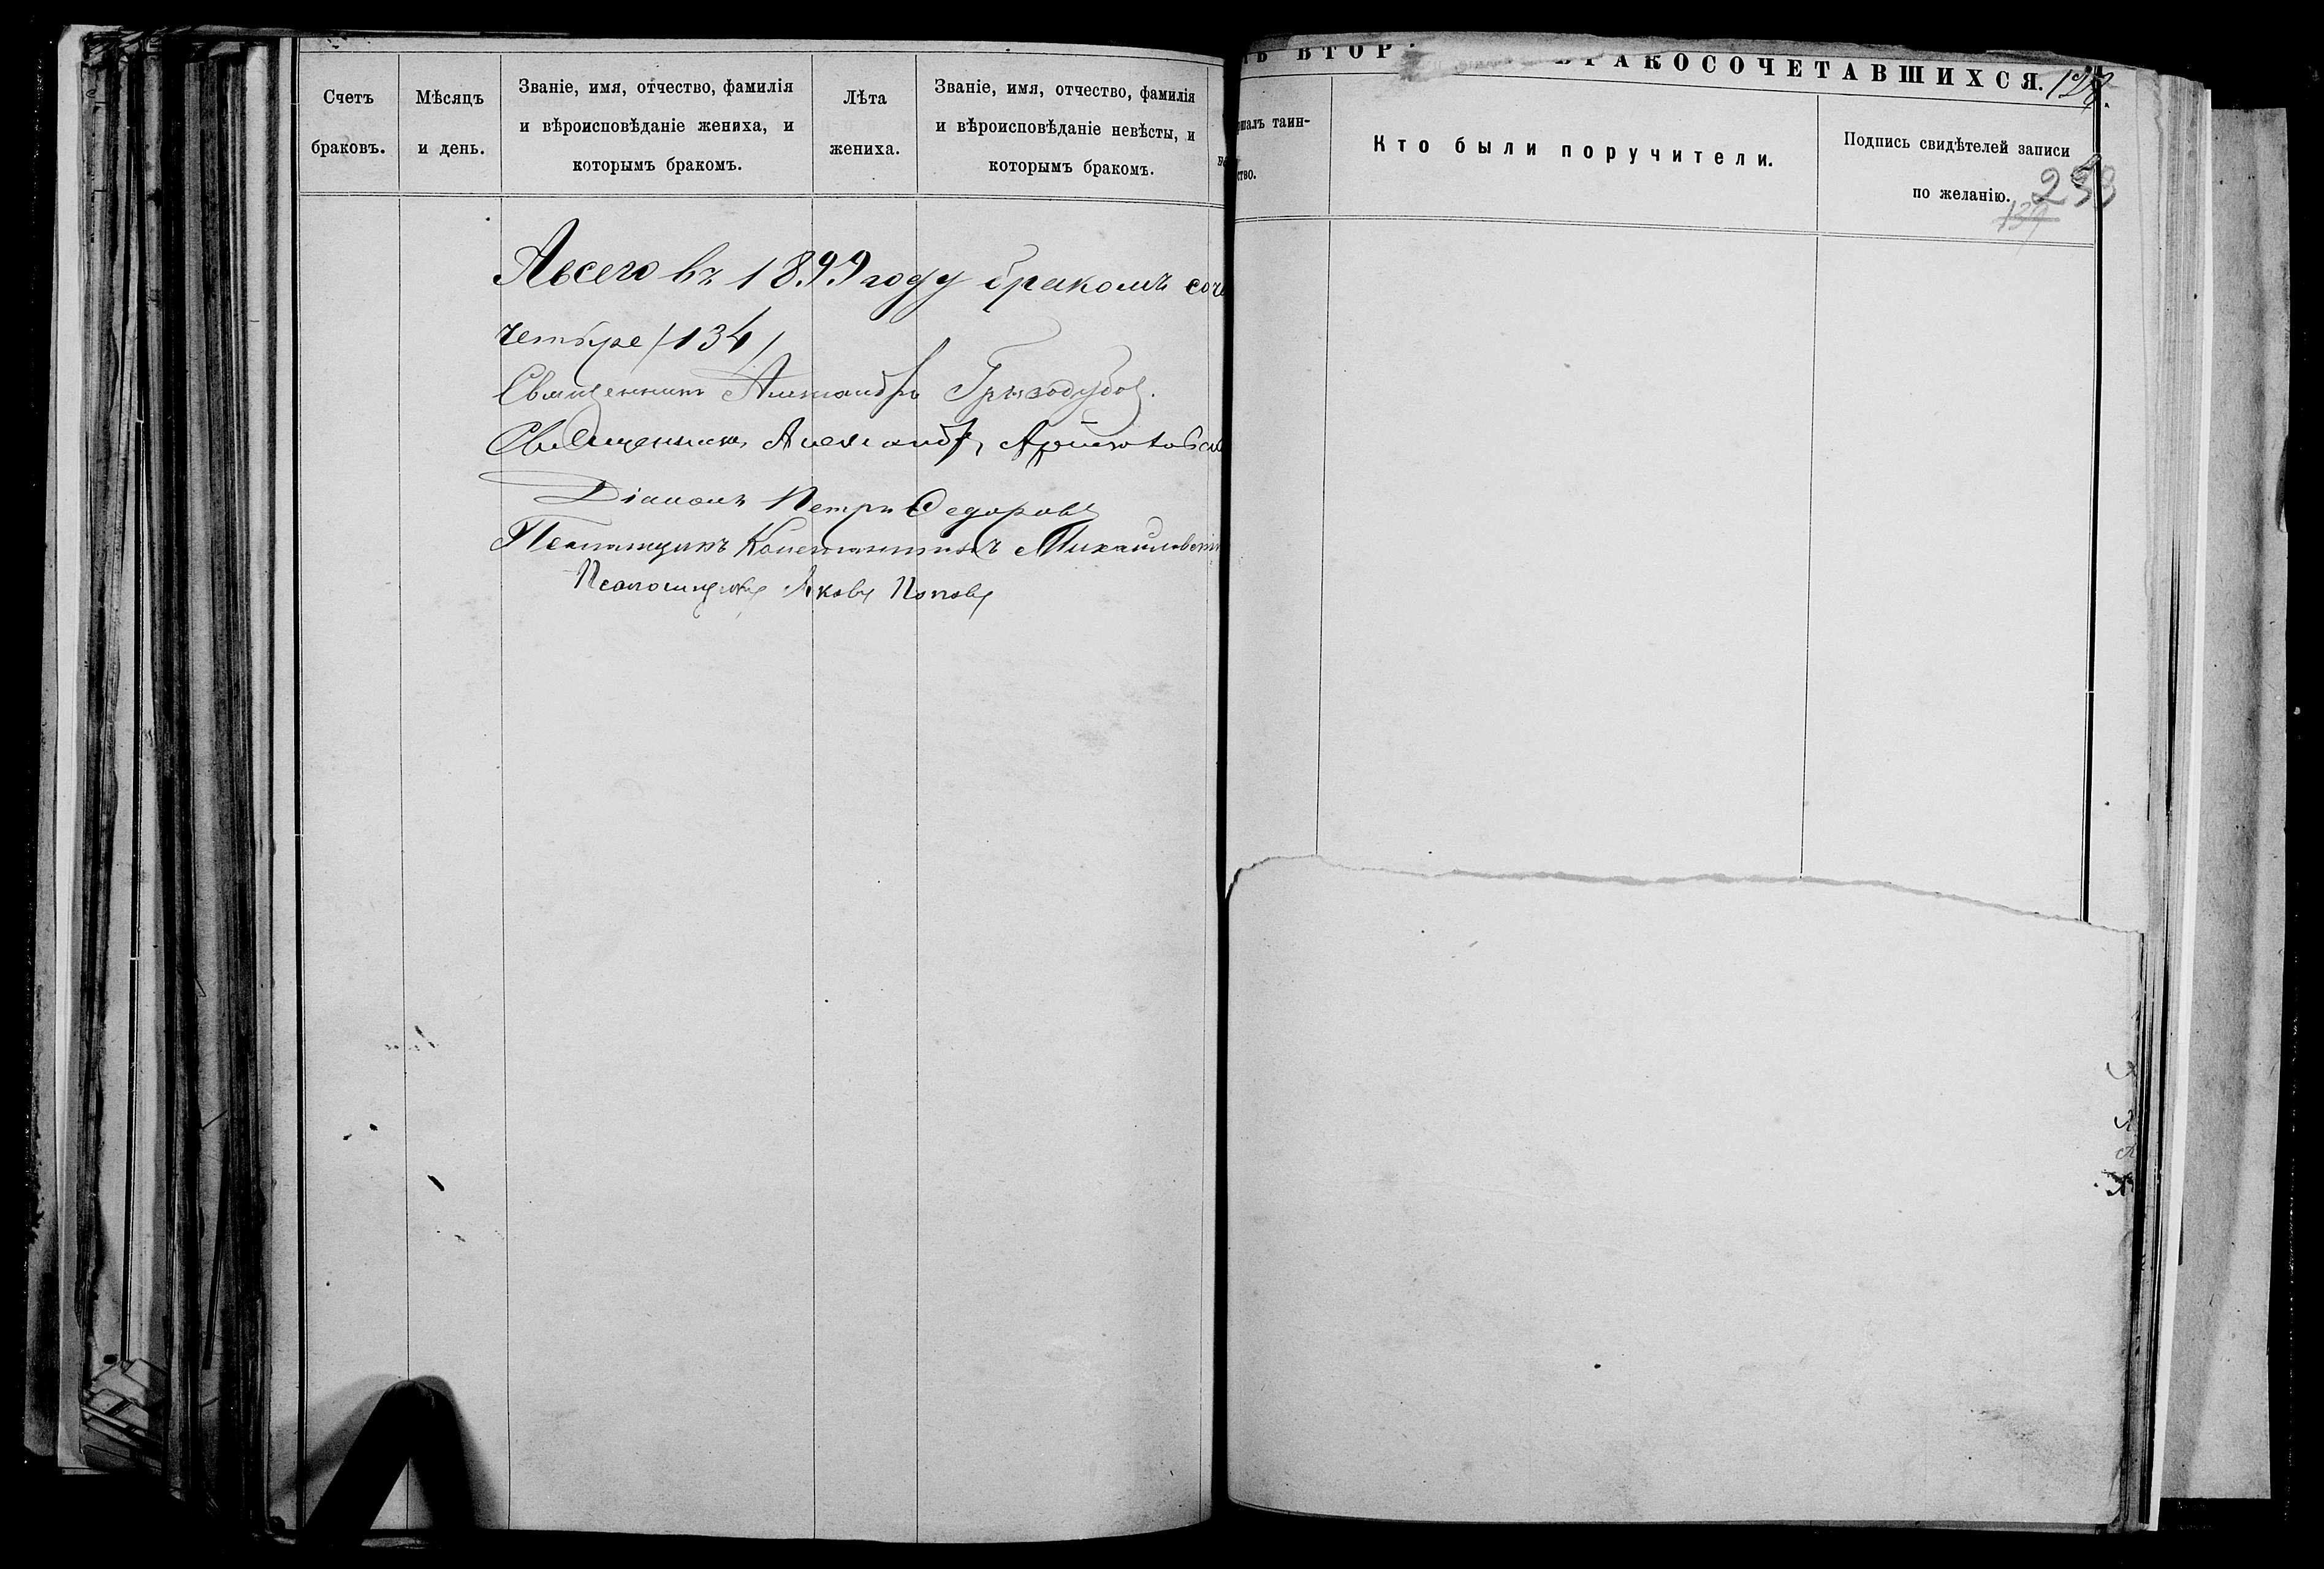 ВТОР РАКОСОЧЕТАВШИХСЯ.
Счетъ браковъ.
Мѣсяцъ и день.
Званіе, имя, отчество, фамилія
и вѣроисповѣданіе жениха, и
которымъ бракомъ.
Лѣта жениха.
Званіе, имя, отчество, фамилія
и вѣроисповѣданіе невѣсты, и
которымъ бракомъ.
таин-
ство.
Кто были поручители.
Подпись свидѣтелей записи
по желанію.
Авсего въ 1899 году бракомъ соче
четыре /134/
Священникъ Александръ Гризодубовъ.
Священникъ Александръ
Діаконъ Петръ Федоровъ
Псаломщикъ Константинъ Михайловскій
Псаломщикъ Яковъ Поповъ